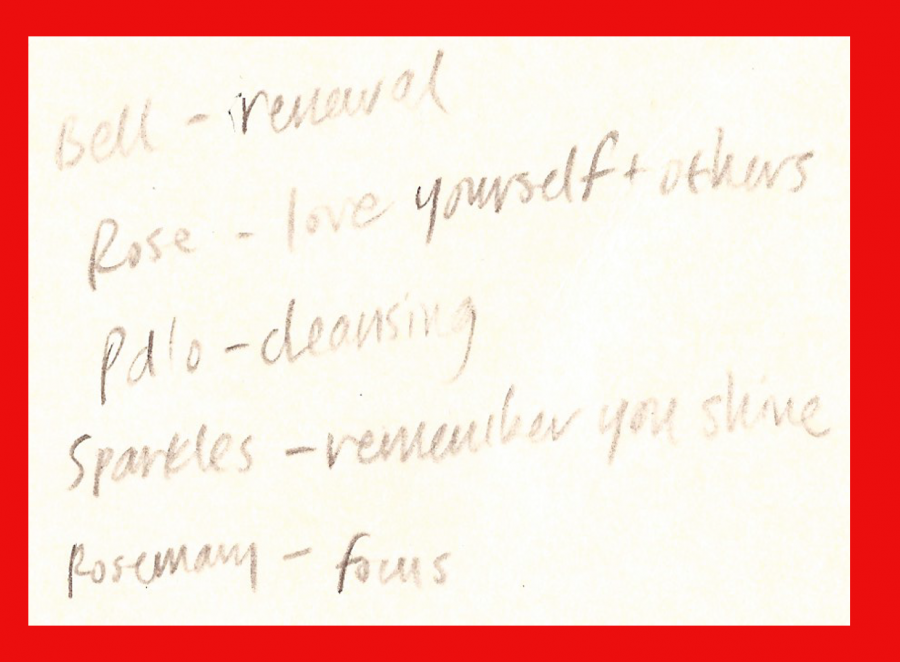 Bell - renewal
Rose - love yourself + others
Palo - cleansing
Sparkles - remember you shine
Rosemary - focus